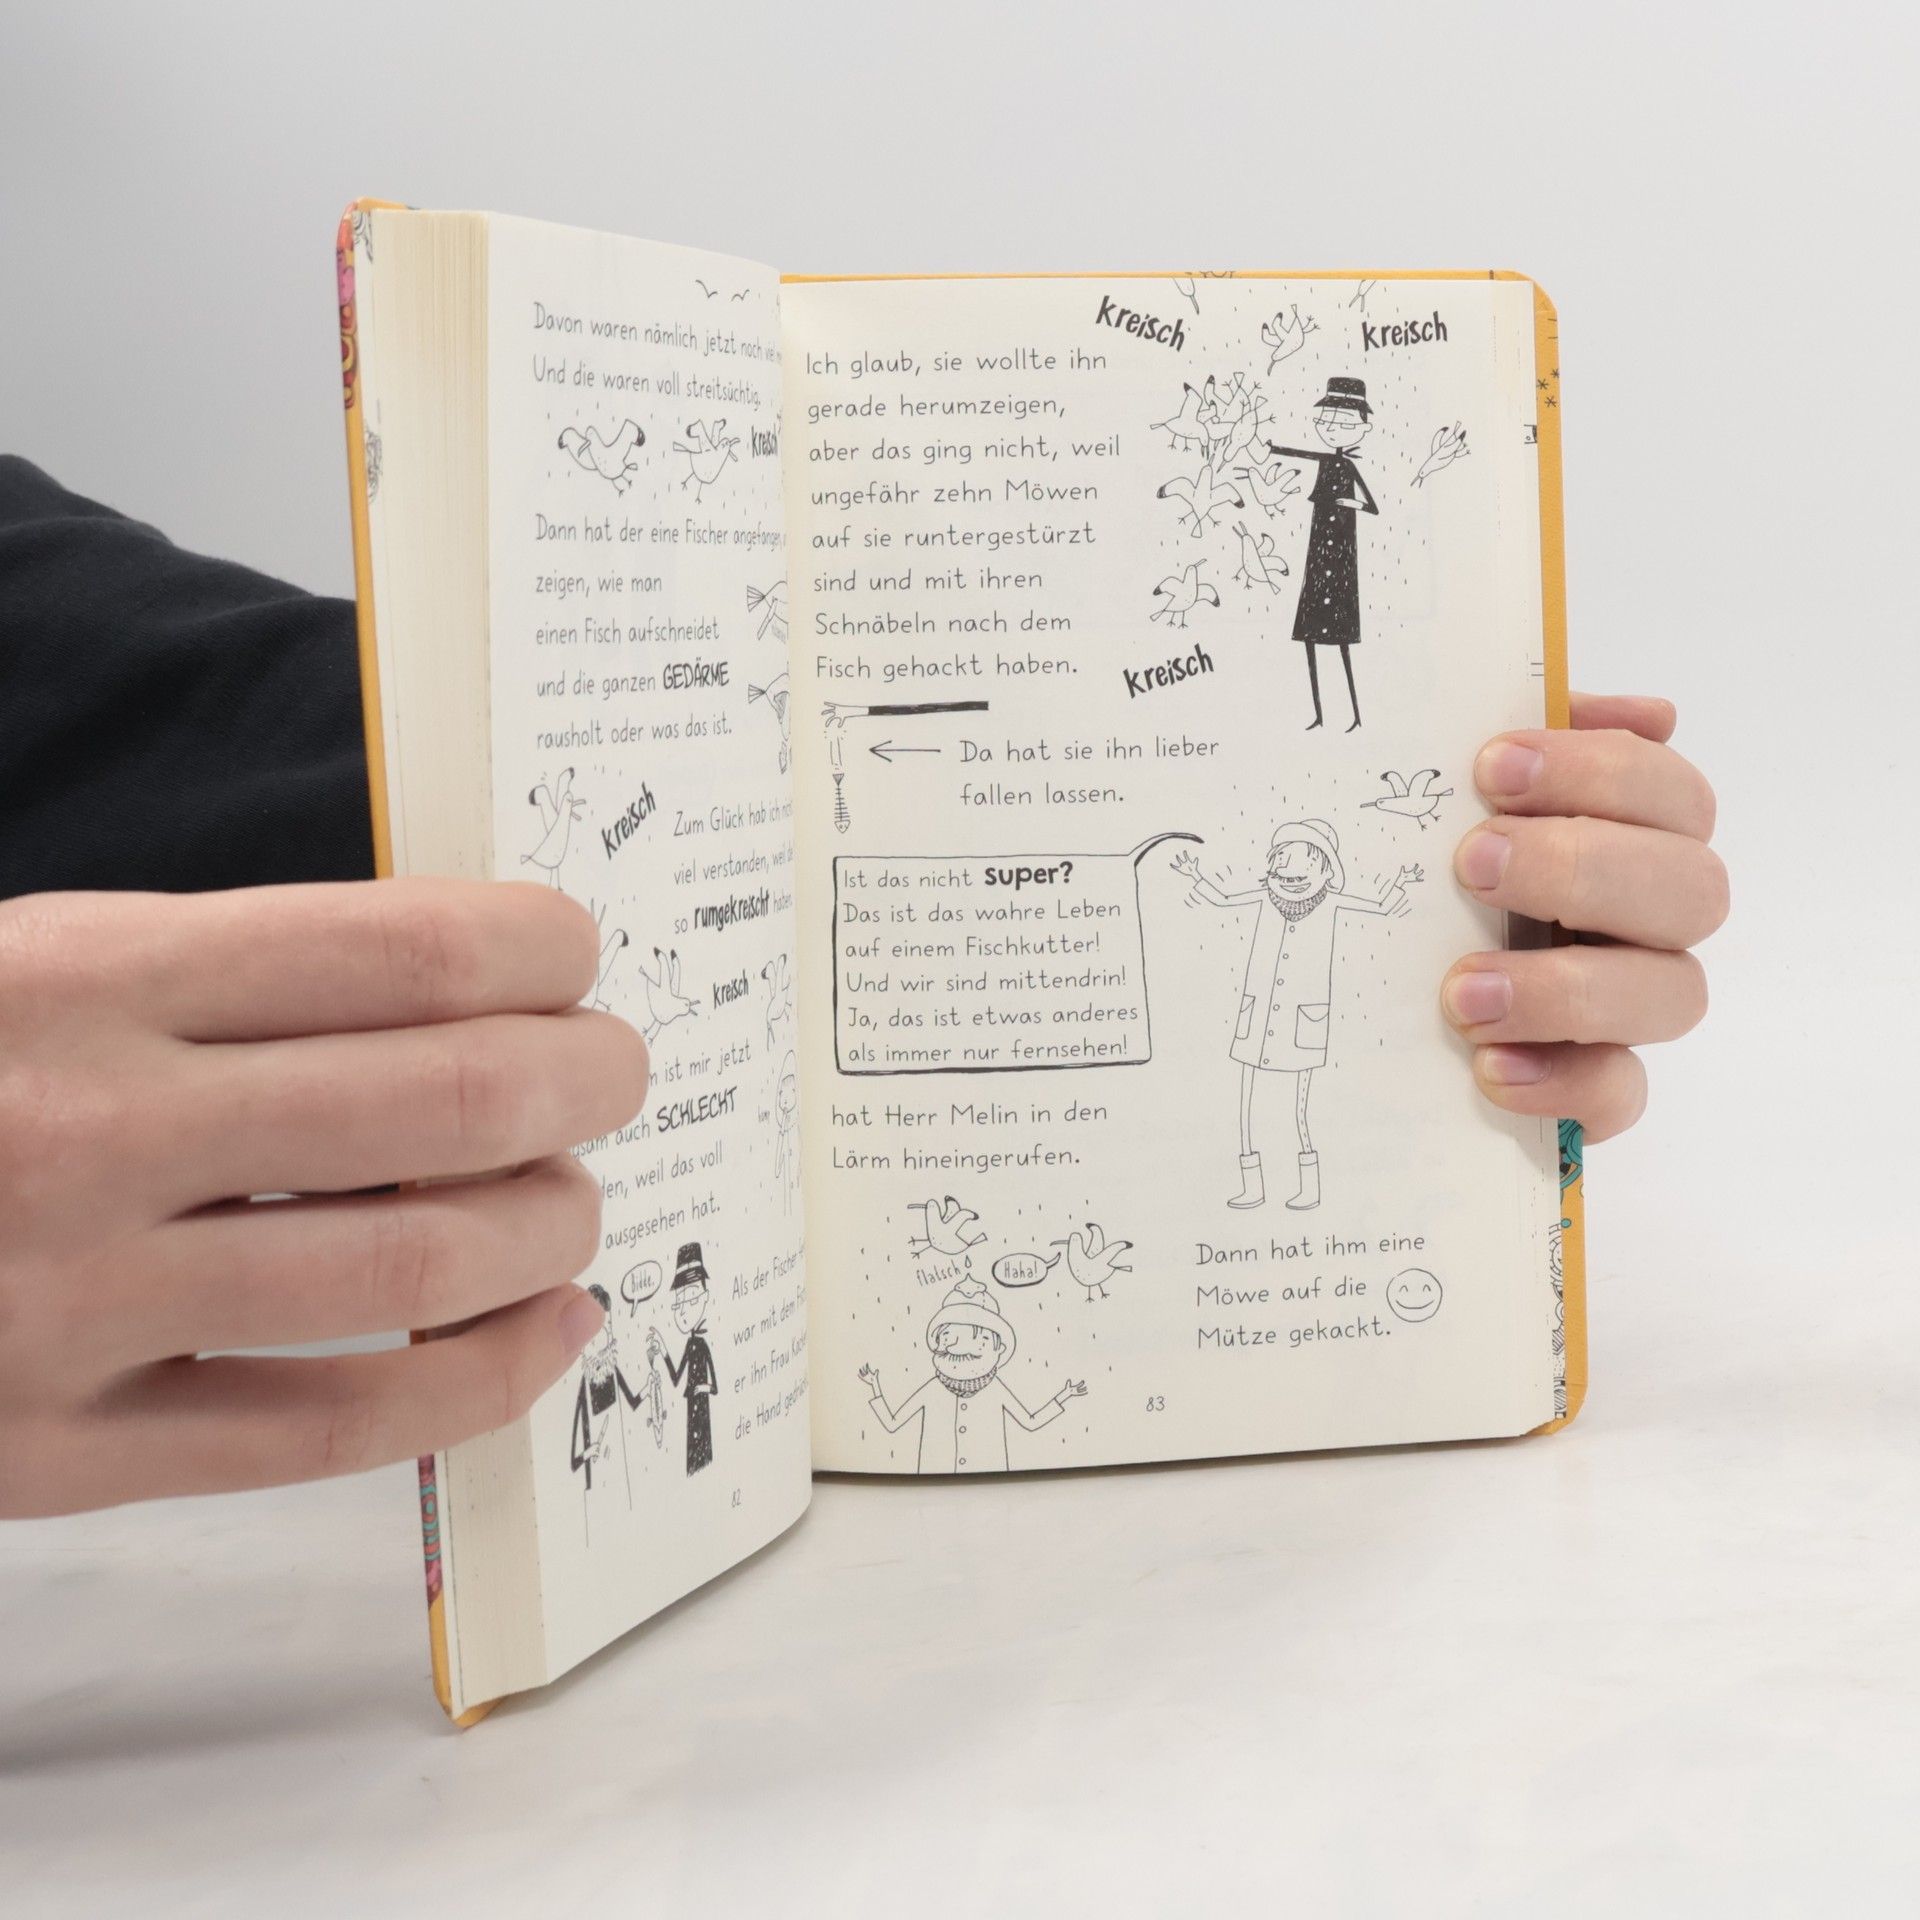 Davon waren nämlich jetzt noch
Und die waren voll streitsüchtig.
kreisch
Dann hat der eine Fischer angefangen,
zeigen, wie man
einen Fisch aufschneidet
und die ganzen GEDÄRME
rausholt oder was das ist.
kreisch
Zum Glück hab ich
viel verstanden, weil
so rumgekreischt
kreisch
ist mir jetzt
auch SCHLECHT
weil das voll
ausgesehen hat.
Bidde.
Als der Fischer
war mit dem
er ihn Frau
die Hand
82
kreisch
kreisch
Ich glaub, sie wollte ihn
gerade herumzeigen,
aber das ging nicht, weil
ungefähr zehn Möwen
auf sie runtergestürzt
sind und mit ihren
Schnäbeln nach dem
Fisch gehackt haben.
kreisch
Da hat sie ihn lieber
fallen lassen.
Ist das nicht super?
Das ist das wahre Leben
auf einem Fischkutter!
Und wir sind mittendrin!
Ja, das ist etwas anderes
als immer nur fernsehen!
hat Herr Melin in den
Lärm hineingerufen.
flatsch
Haha!
Dann hat ihm eine
Möwe auf die
Mütze gekackt.
83